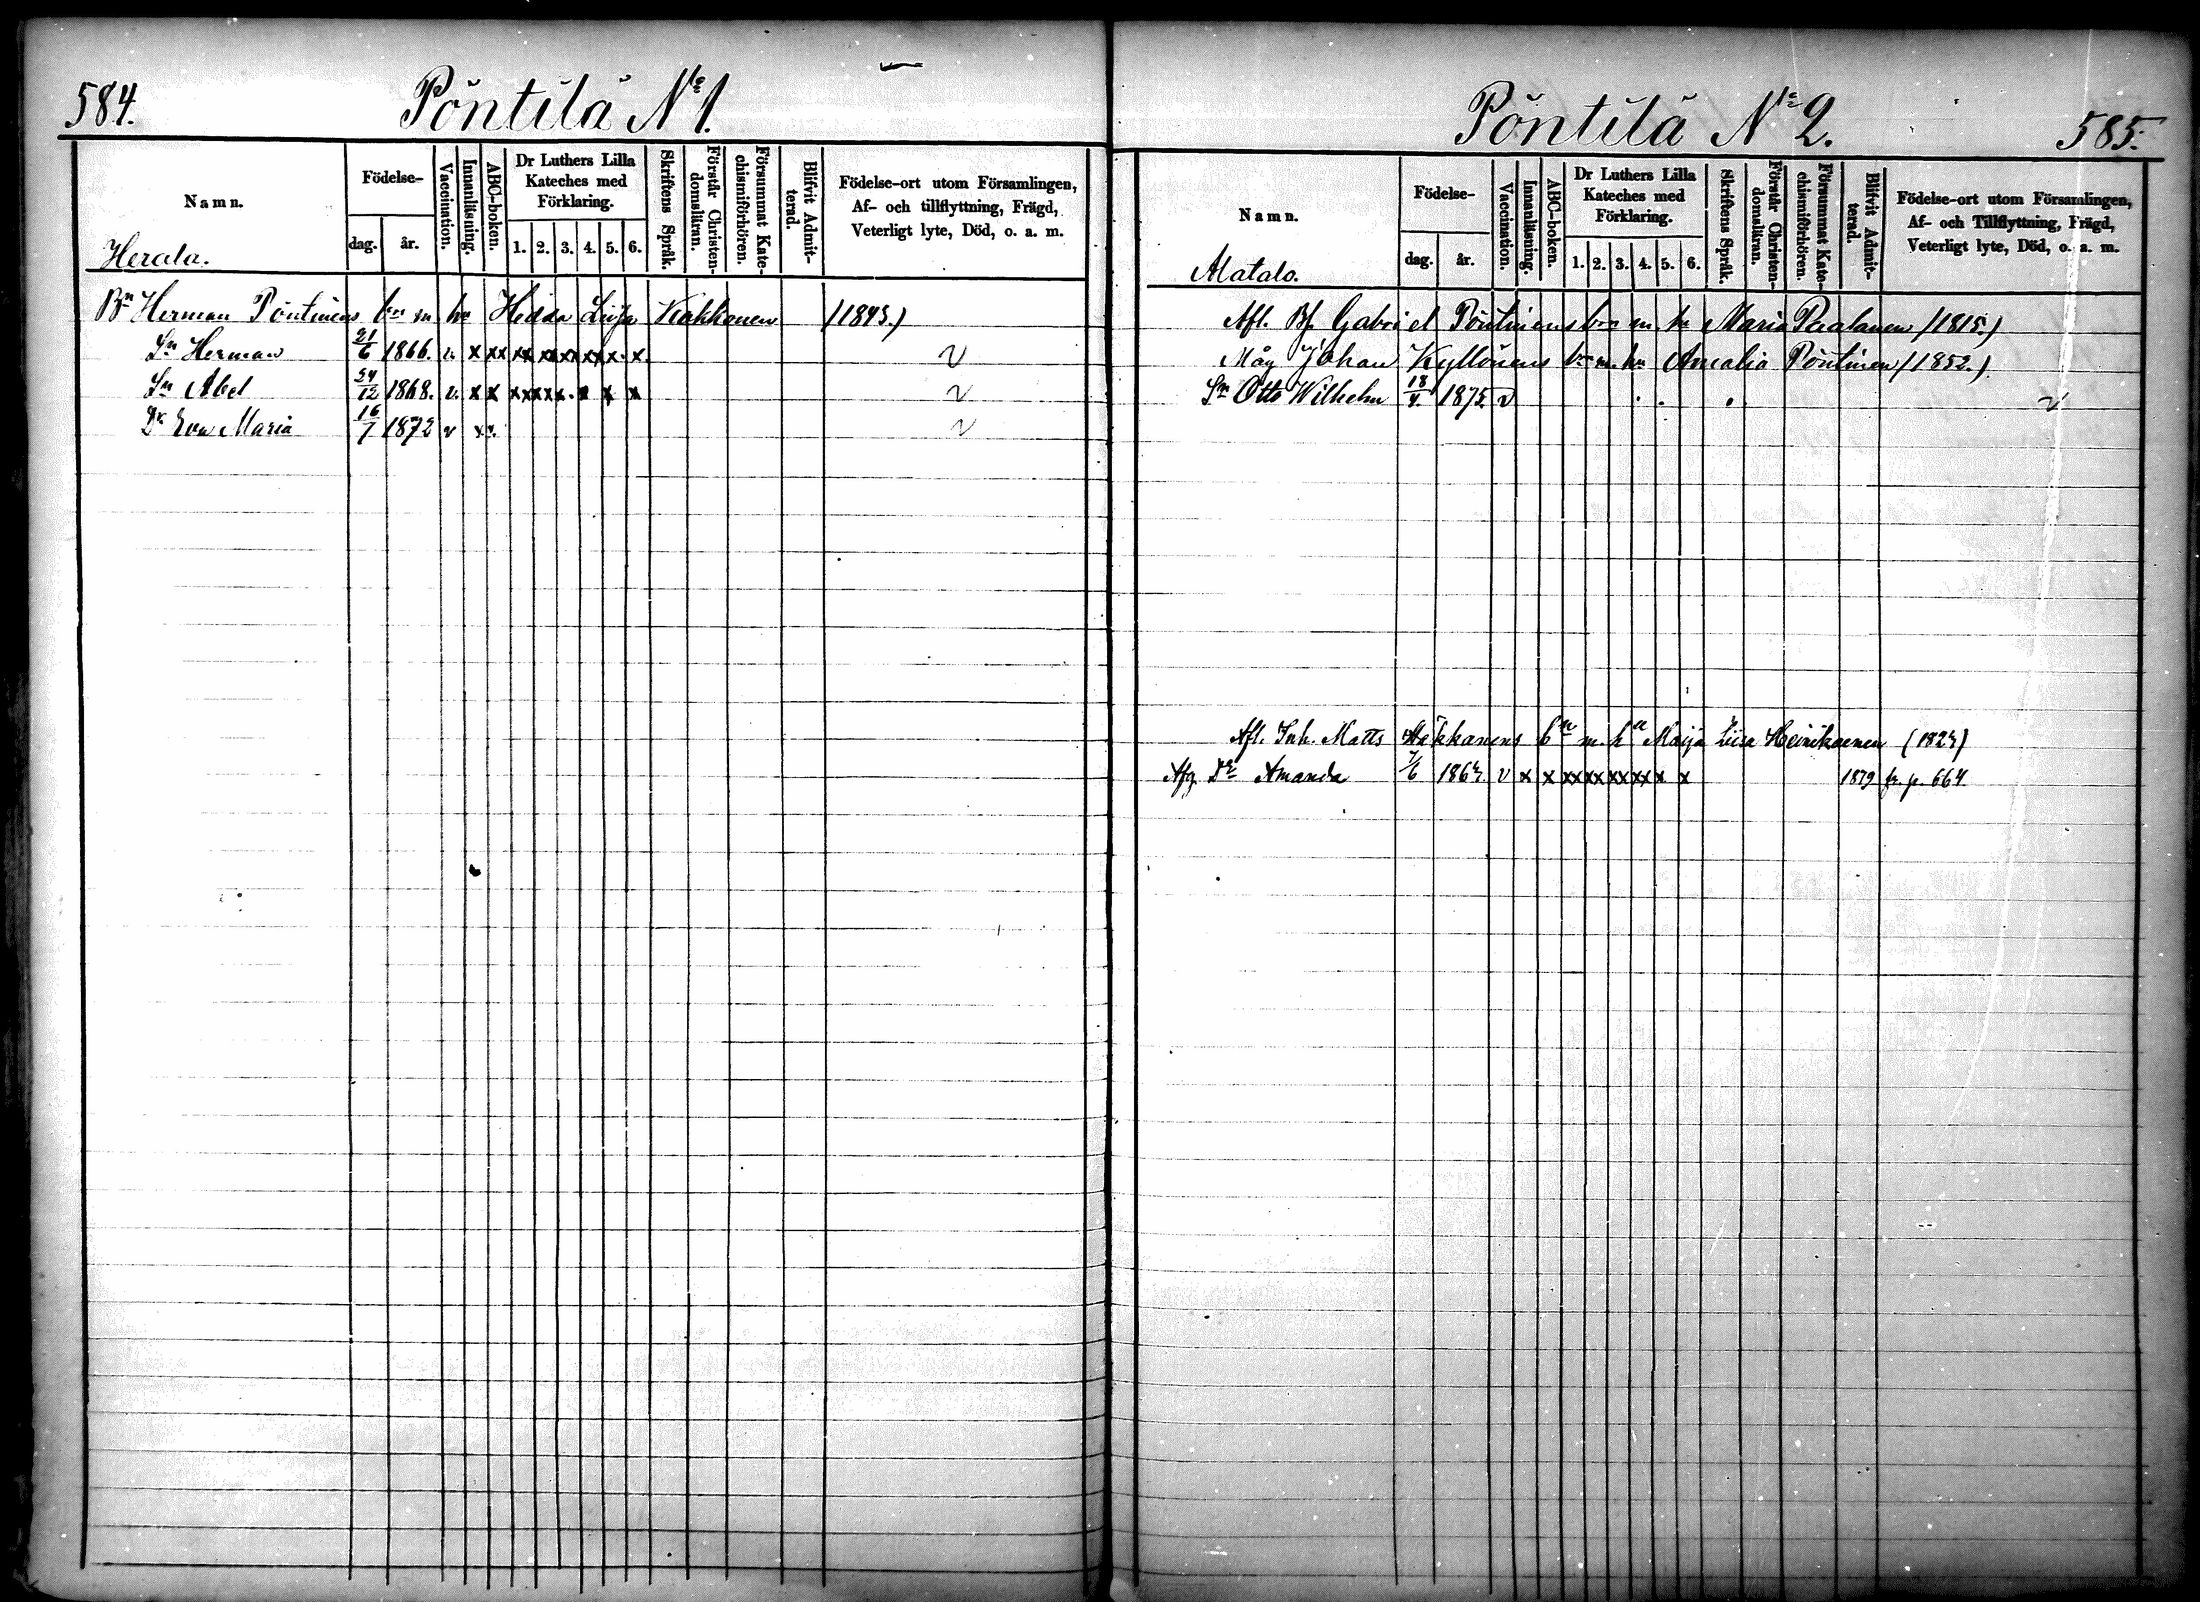 584.
Pöntilä No 1.
Namn.
Födelse-
dag.
år.
Vaccination.
Innanläsning.
ABC-boken.
Dr Luthers Lilla Kateches med Förklaring.
1. 2. 3. 4. 5. 6.
Skriftens Språk.
Förstår Christendomsläran.
Försummat Katechismiförhören.
Blifvit Admitterad.
Födelse-ort utom Församlingen,
Af- och tillflyttning, Frägd,
Veterligt lyte, Död, o. a. m.
Herala.
Bn Herman Pöntinens bn m. ha Hedda Liisa Kakkonen (1843.)
Sn Herman 21/6 1866. v. x xx xx xx xx xx x. x. v
Sn Abel 24/12 1868. v. x x x x x x x. x x x v
Dr Eva Maria 16/7 1872 v x v
Pöntilä No 2.
585.
Namn.
Födelse-
dag.
år.
Vaccination.
Innanläsning.
ABC-boken.
Dr Luthers Lilla Kateches med Förklaring.
1. 2. 3. 4. 5. 6.
Skriftens Språk.
Förstår Christendomsläran.
Försummat Katechismiförhören.
Blifvit Admitterad.
Födelse-ort utom Församlingen,
Af- och Tillflyttning, Frägd,
Veterligt lyte, Död, o. a. m.
Matalo.
Afl. Bf. Gabriel Pöntinens bn m. ha Maria Paalanen (1815.)
Måg Johan Kyllönens bn m. ha Amalia Pöntinen (1852.)
Sn Otto Wilhelm 18/4. 1875. v v
Afl. Inh. Matts Häkkänens bn m. ha Maija Liisa Heinikainen (1824)
Afg. Dr Amanda 7/6 1864. v x x xx xx xx xx x x 1879 fr. p. 664.